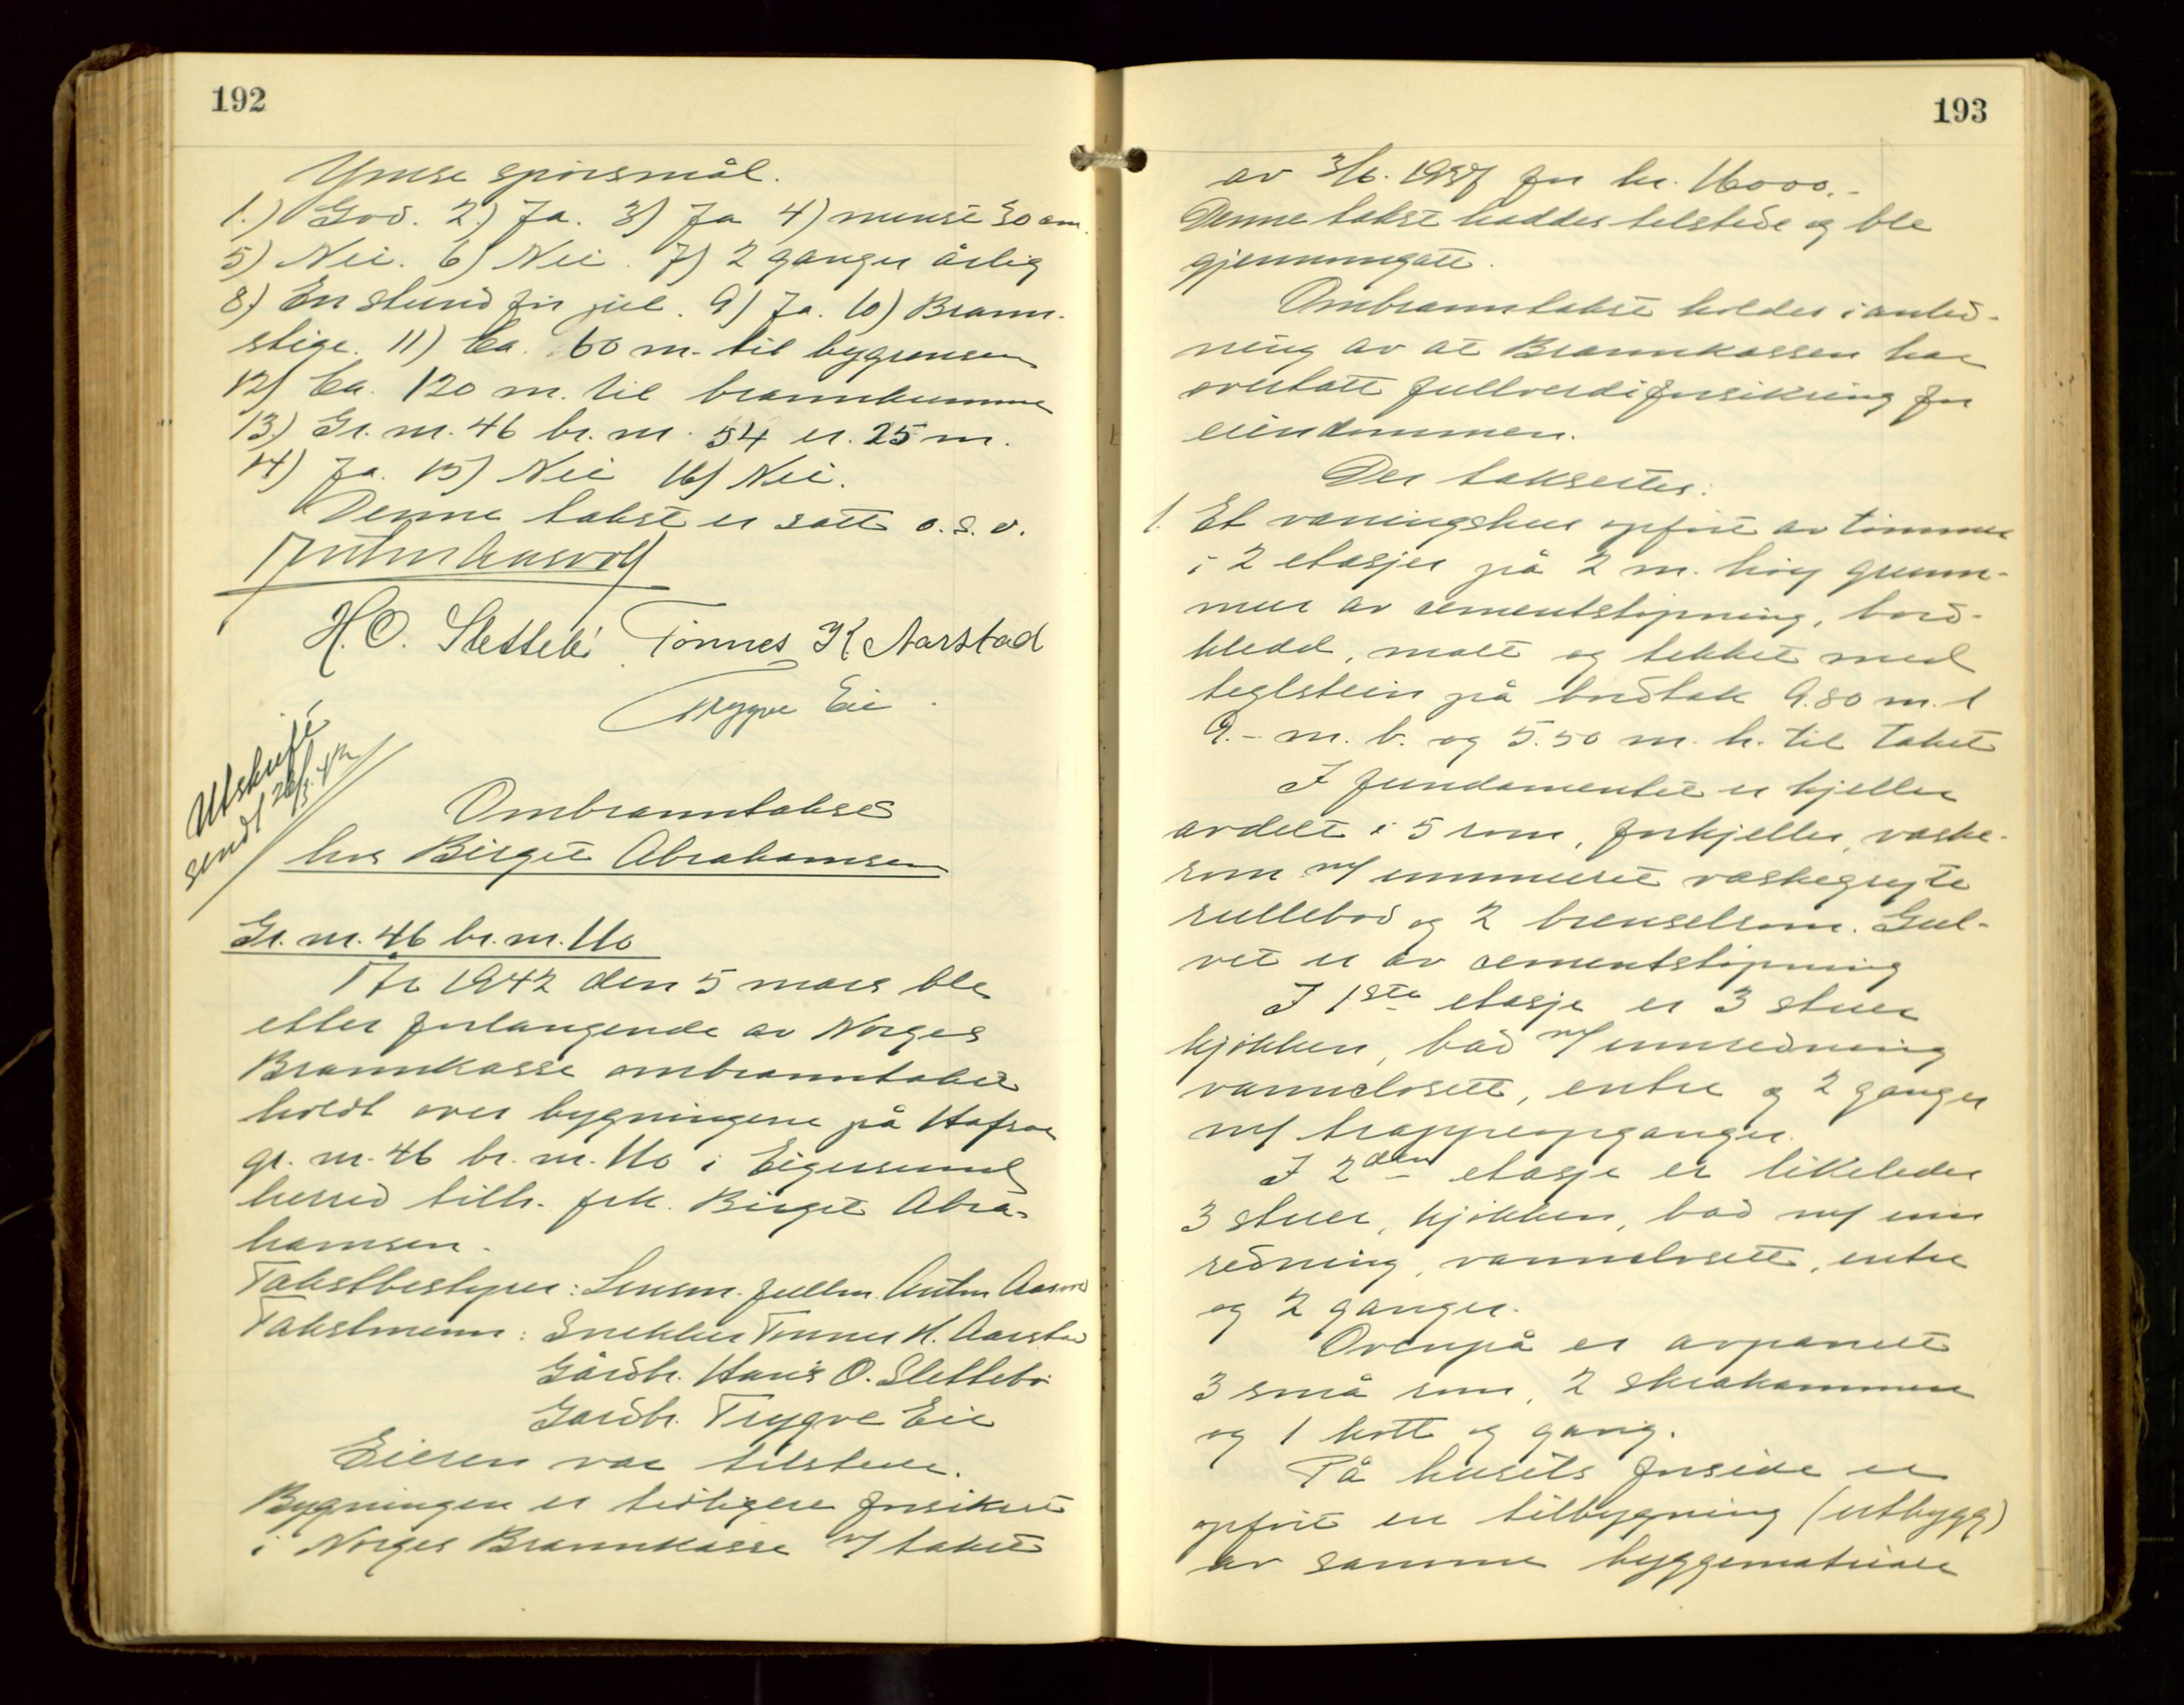 192
Ymse spörsmål.
1.) God. 2.) Ja. 3) Ja 4) minst 30 cm.
5) Nei. 6) Nei. 7) 2 ganger årlig
8) En stund för jul. 9) Ja. 10) Brann-
stige. 11) Ca. 60 m. til bygrensen
12) Ca. 120 m. til brannkumme
13) Gr. nr. 46 br. nr. 54 er 25 m.
14) Ja. 15) Nei 16) Nei.
Denne takst er satt o.s.v.
H.O. Slettebö Tönnes K Aarstad
Trygve Eie.
Utskrift
sendt 26/3.42
Ombranntakst
hos Birgit Abrahamsen
Gr. nr. 46 br. nr. 110
År 1942 den 5 mars ble
etter forlangende av Norges
Brannkasse ombranntakst
holdt over bygningene på Hafsøe
gr. nr. 46 br. nr. 110 i Eigersund
herred tilh. frk. Birgit Abra-
hamsen.
Takstbestyrer: Lensm. fullm. Anton Aasvold
Takstmenn: Snekker Tönnes K. Aarstad
Gårdbr. Hans O. Slettebö
Gardbr. Trygve Eie
Eieren var tilstede.
Bygningen er tidligere forsikret
i Norges Brannkasse v/ takst
193
av 3/6. 1937 for kr. 16000.-
Denne takst haddes tilstede og ble
gjennomgått.
Ombranntakst holdes i anled-
ning av at Brannkassen har
overtatt fullverdiforsikring for
eiendommen.
Der taksertes:
1. Et våningshus opfört av tömmer
i 2 etasjer på 2 m. höy grunn-
mur av cementstöpning, bord-
kledd, malt og tekket med
teglstein på bordtak 9.80 m. l
9.- m. b. og 5.50 m. h. til taket
I fundamentet er kjeller
avdelt i 5 rom, forkjeller, vaske-
rom m/ innmuret vaskegryte
rullebod og 2 brenselrom. Gul-
vet er av cementstöpning
I 1ste etasje er 3 stuer
kjökken, bad m/ innredning
vannclosett, entre og 2 ganger
m/ trappeopganger.
I 2den etasje er likeledes
3 stuer, kjökken, bad m/ inn
redning, vannclosett, entre
og 2 ganger.
Ovenpå er avpanelt
3 små rom, 2 skråkammere
og 1 kott og gang.
På husets forside er
opfört en tilbygning (utbygg)
av samme byggematriale